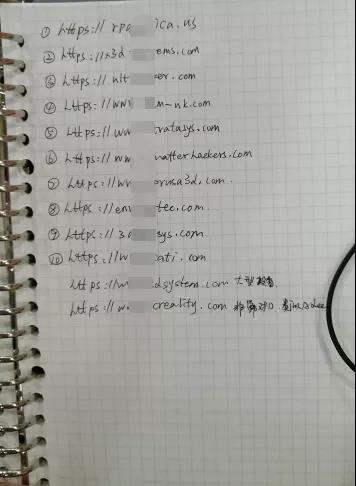 ① https://rpa ica.us
② https://x3d ems.com
③ https://ult er.com
④ https://ww m-nk.com
⑤ https://ww ratasys.com
⑥ https://ww matterhackers.com
⑦ https://ww prusa3d.com.
⑧ https://env tec.com.
⑨ https://3d sys.com
⑩ https://w pati.com
https://w dsystem.com 大型
https://w creality.com